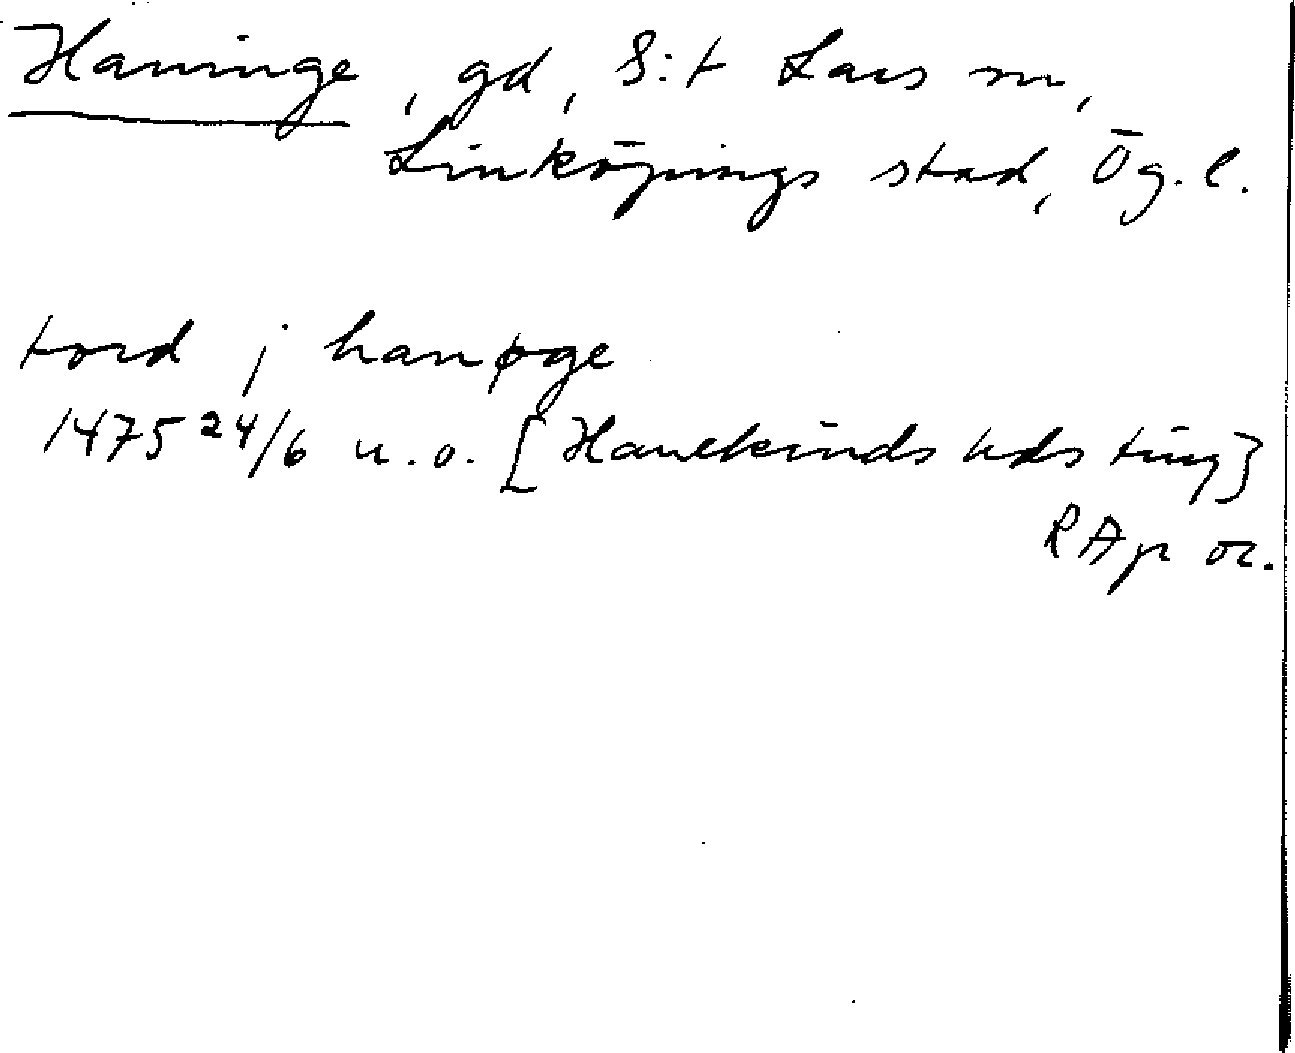 Haninge, gd, S:t Lars sn,
Linköpings stad, Ög. l.
tord j hanøge
1475 24/6 u.o. [Hanekinds hds ting]
RAp or.